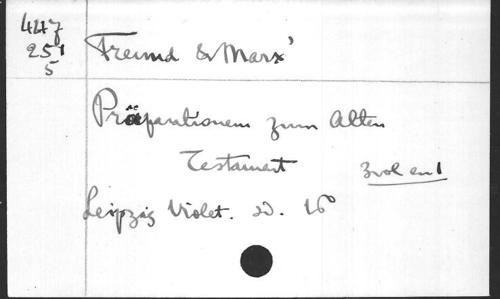 447
251
5
Freund & Marx'
Präparationem zum Alten
Testament
3 vol en 1
Leipzig Violet. s.d. 16°